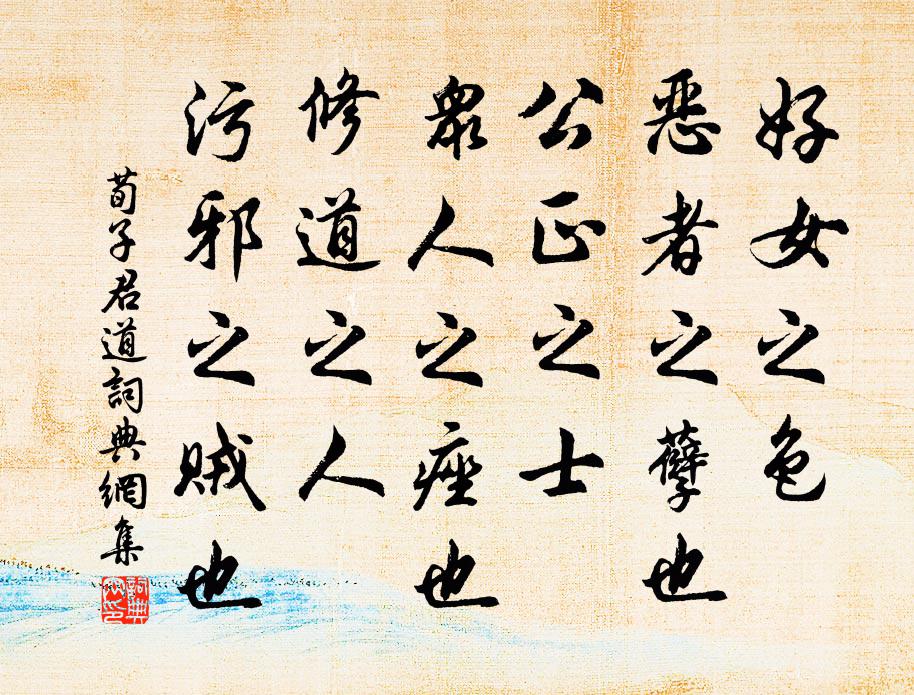 好女之色
恶者之孽也
公正之士
眾人之痤也
修道之人
污邪之贼也
荀子君道詞典網集